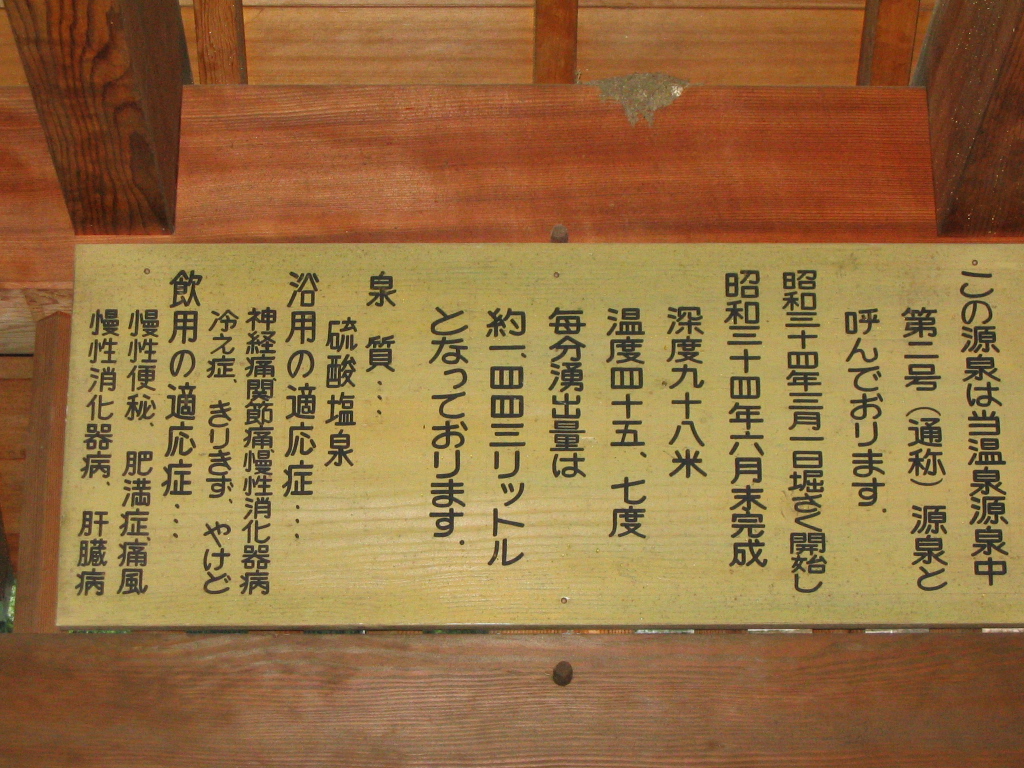 この源泉は当温泉源泉中
第二号（通称）源泉と
呼んでおります.
昭和三十四年三月一日堀さく開始し
昭和三十四年六月末完成
深度九十八米
温度四十五、七度
毎分湧出量は
約一、四四三リットル
となっております.
泉質…
硫酸塩泉
浴用の適応症…
神経痛関節痛慢性消化器病
冷え症、きりきず、やけど
飲用の適応症…
慢性便秘、肥満症痛風
慢性消化器病、肝臓病